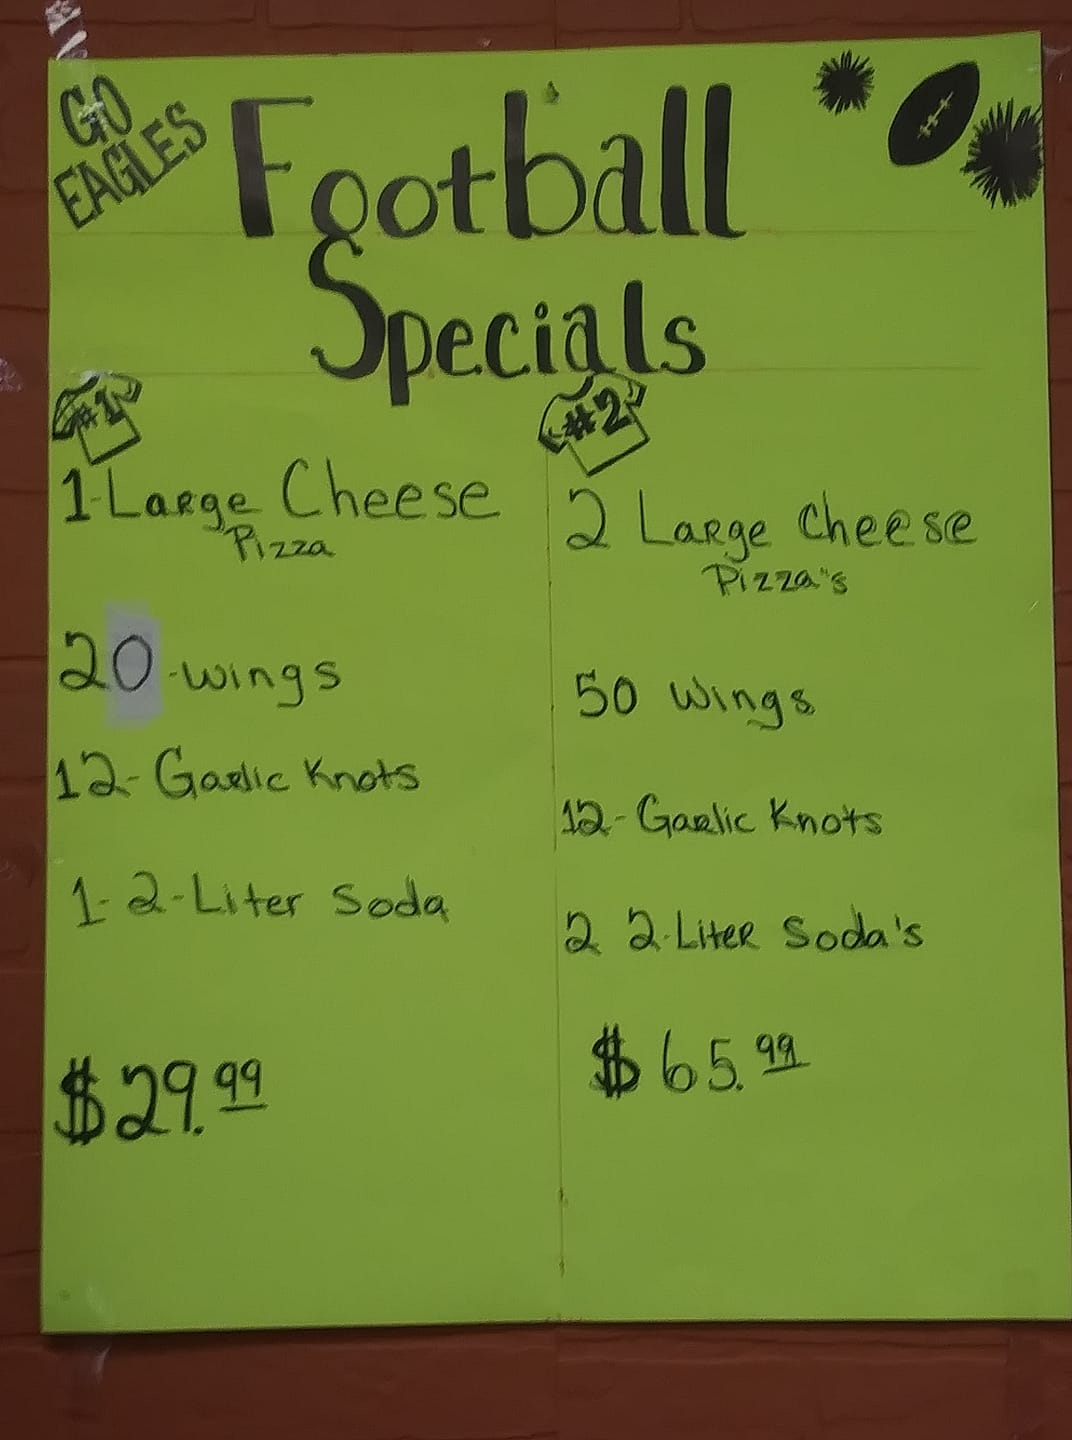 GO
EAGLES
Football
Specials
#1
1-Large Cheese
Pizza
20-wings
12-Garlic Knots
1-2-Liter Soda
$29.99
#2
2 Large Cheese
Pizza"s
50 Wings
12-Garlic Knots
2 2-Liter Soda's
$65.99